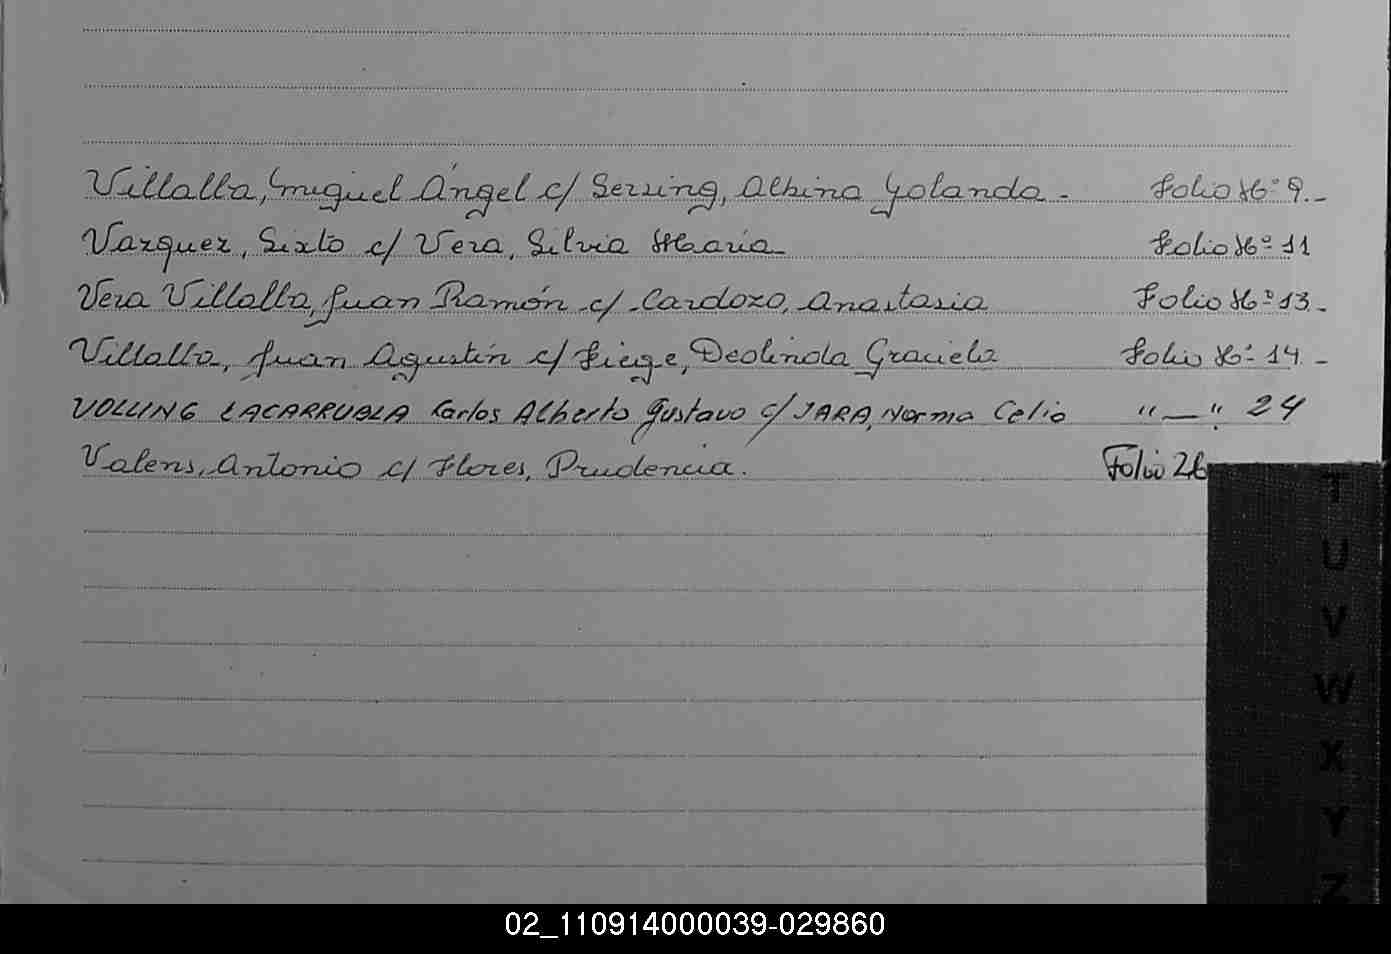 Villalba, Miguel Ángel c/ Serzing, Albina Yolanda - Folio Nº 9.-
Vazquez, Sixto c/ Vera, Silvia María - Folio Nº 11
Vera Villalba, Juan Ramón c/ Cardozo, Anastasia Folio Nº 13.-
Villalba, Juan Agustín c/ Fiege, Deolinda Graciela Folio Nº 14.-
VOLLING LACARRUBLA Karlos Alberto Gustavo c/ JARA, Norma Celia "—" 24
Valens, Antonio c/ Flores, Prudencia. Folio 26
T
U
V
W
X
Y
Z
02_110914000039-029860